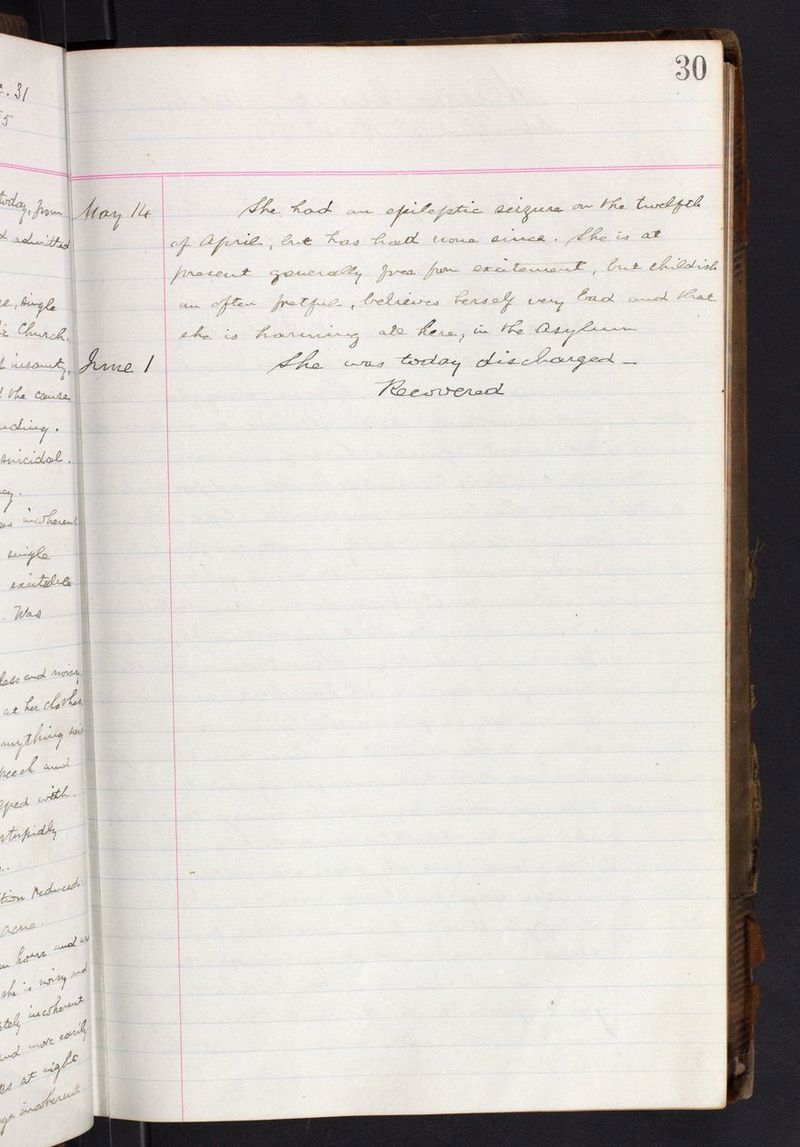 30
May 14 She had an epileptic seizure on the twelfth
of April, but has had none since. She is at
present generally free from excitement, but childish
an often fretful, believes herself very bad and that
she is harming all here, in the Asylum
June 1 She was today discharged —
Recovered
31
5
today, from
admitted
single
Church.
insanity,
the causes
suicidal.
incoherent
single
excitable
Was
less and noisy,
at her clothes
anything
speech and
with.
stupidly
tion reduced
acne.
hour and
she is noisy and
incoherent
and more easily
at night
incoherent